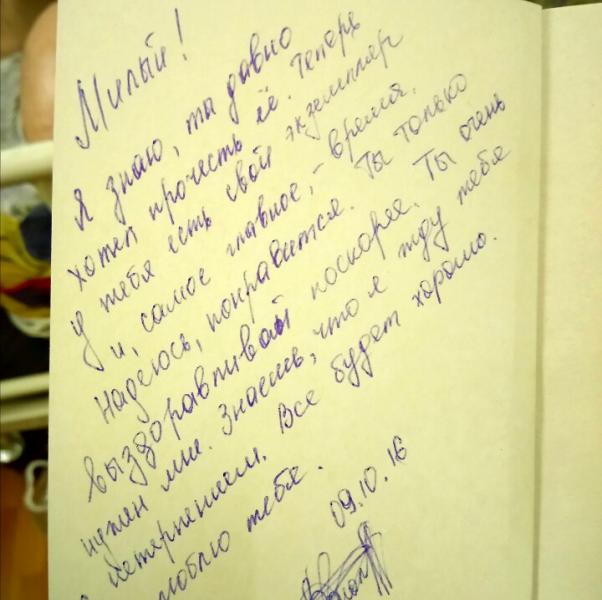 Милый!
Я знаю, ты давно
хотел прочесть её. Теперь
у тебя есть свой экземпляр
и, самое главное, - время.
Надеюсь, понравится. Ты только
выздоравливай поскорее. Ты очень
нужен мне. Знаешь, что я жду тебя
с нетерпением. Все будет хорошо.
люблю тебя.
09.10.16